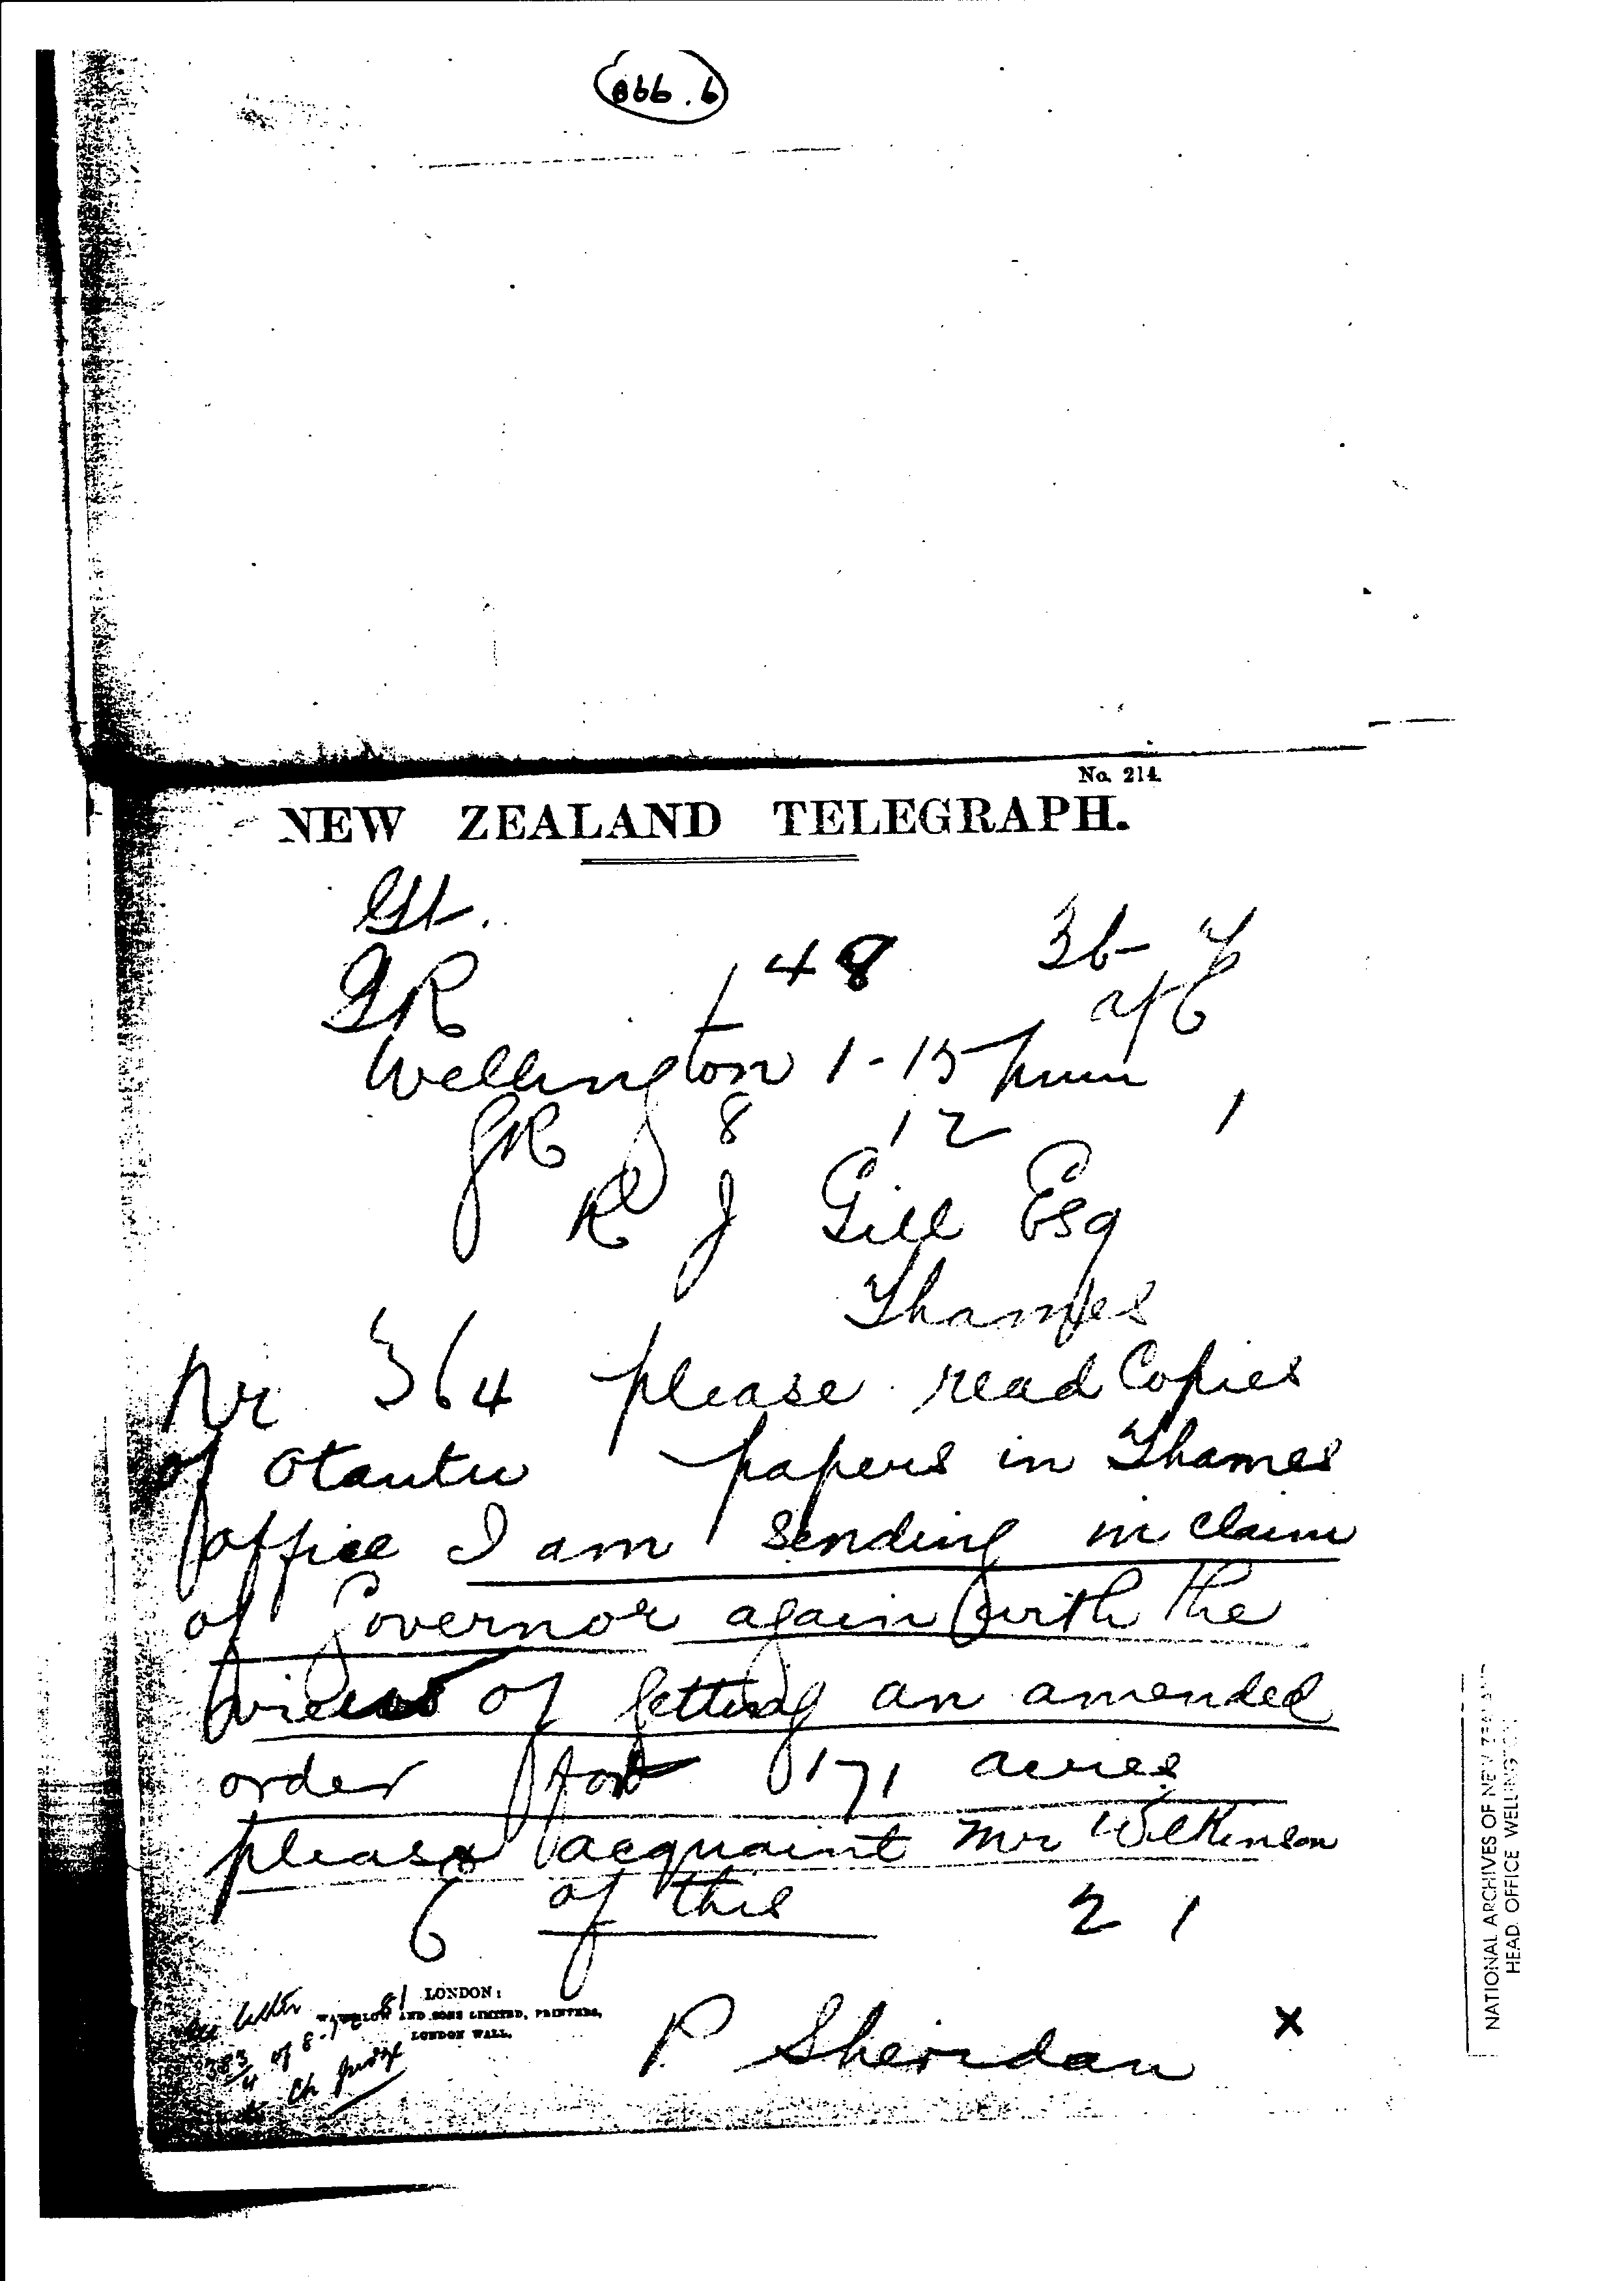 866.6
No. 214.
NEW ZEALAND TELEGRAPH.
48
Wellington 1-15 pm
8 12 1
R J Gill Esq
Thames
Nr 364 please read Copies
of Otautu papers in Thames
office I am sending in claim
of Governor again with the
view of getting an amended
order for 171 acres
please acquaint Mr Wilkinson
6 of this 2 1
P Sheridan x
LONDON:
WATERLOW AND SONS LIMITED, PRINTERS,
LONDON WALL.
letter
383/4 of 8-12 81
Ch Judge
NATIONAL ARCHIVES OF NEW ZEALAND
HEAD OFFICE WELLINGTON